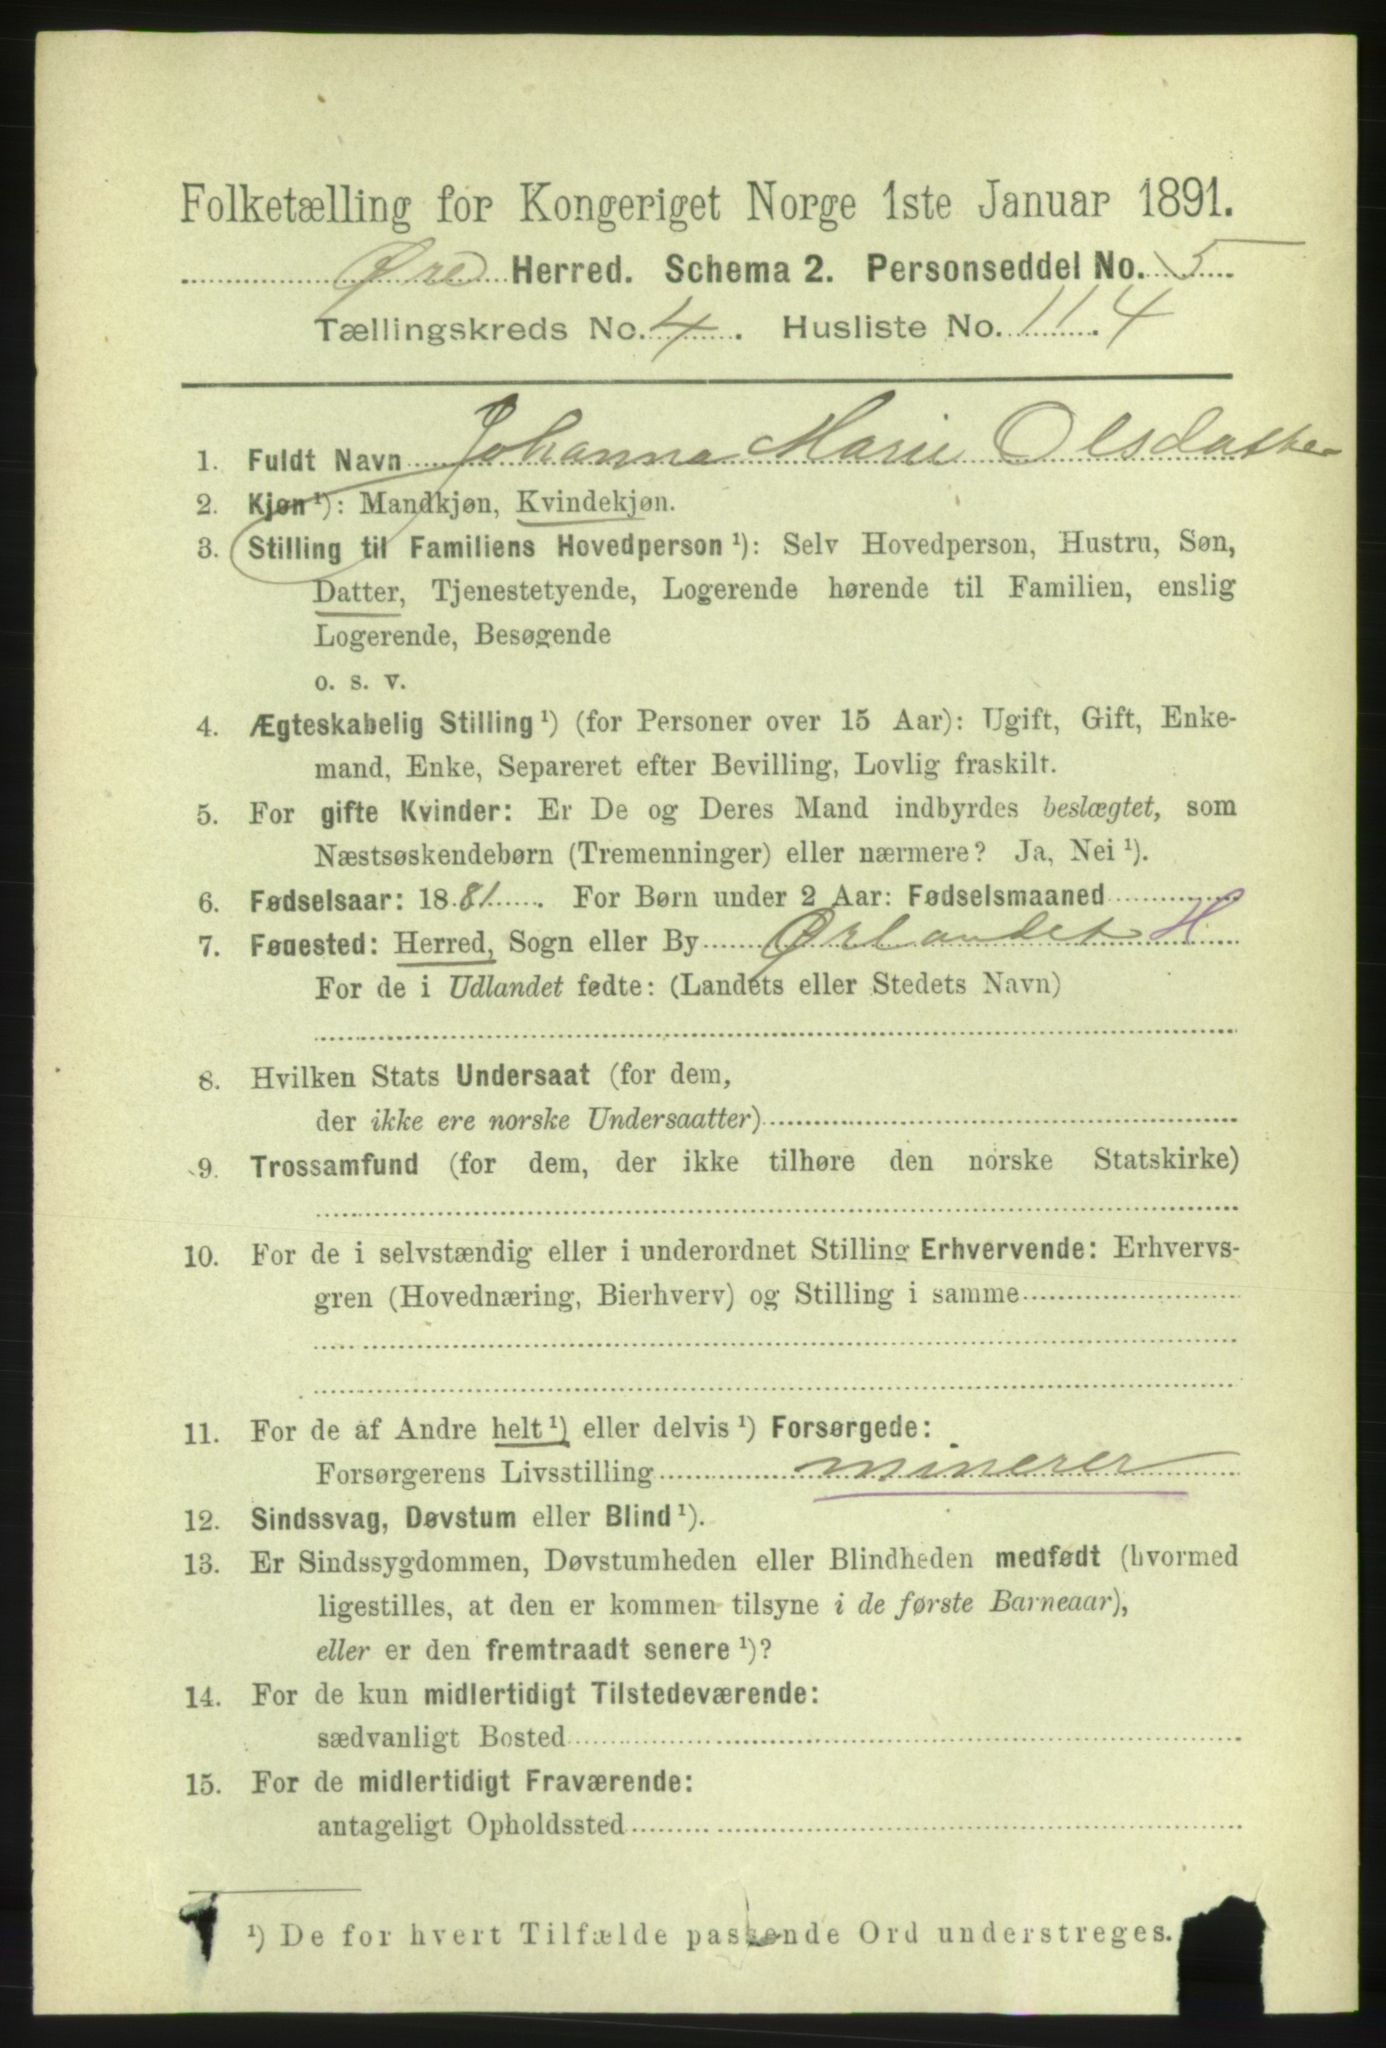 Folketælling for Kongeriget Norge 1ste Januar 1891.
Øre Herred. Schema 2. Personseddel No. 5
Tællingskreds No. 4. Husliste No. 114
1. Fuldt Navn Johanna Marie Olsdatter
2. Kjøn ¹): Mandkjøn, Kvindekjøn.
3. Stilling til Familiens Hovedperson ¹): Selv Hovedperson, Hustru, Søn,
Datter, Tjenestetyende, Logerende hørende til Familien, enslig
Logerende, Besøgende
o. s. v.
4. Ægteskabelig Stilling ¹) (for Personer over 15 Aar): Ugift, Gift, Enke-
mand, Enke, Separeret efter Bevilling, Lovlig fraskilt.
5. For gifte Kvinder: Er De og Deres Mand indbyrdes beslægtet, som
Næstsøskendebørn (Tremenninger) eller nærmere? Ja, Nei ¹).
6. Fødselsaar: 1881. For Børn under 2 Aar: Fødselsmaaned
7. Fødested: Herred, Sogn eller By Ørlandet H
For de i Udlandet fødte: (Landets eller Stedets Navn)
8. Hvilken Stats Undersaat (for dem,
der ikke ere norske Undersaatter)
9. Trossamfund (for dem, der ikke tilhøre den norske Statskirke)
10. For de i selvstændig eller i underordnet Stilling Erhvervende: Erhvervs-
gren (Hovednæring, Bierhverv) og Stilling i samme
11. For de af Andre helt ¹) eller delvis ¹) Forsørgede:
Forsørgerens Livsstilling minerer
12. Sindssvag, Døvstum eller Blind ¹).
13. Er Sindssygdommen, Døvstumheden eller Blindheden medfødt (hvormed
ligestilles, at den er kommen tilsyne i de første Barneaar),
eller er den fremtraadt senere ¹)?
14. For de kun midlertidigt Tilstedeværende:
sædvanligt Bosted
15. For de midlertidigt Fraværende:
antageligt Opholdssted
¹) De for hvert Tilfælde passende Ord understreges.